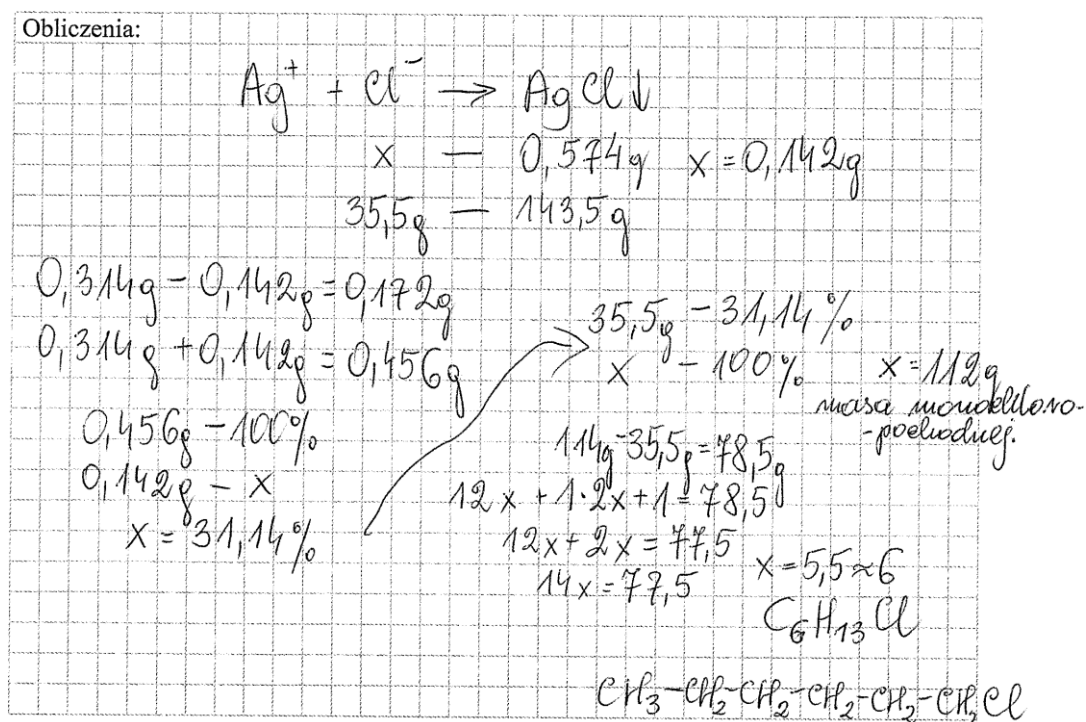 Obliczenia:
Ag⁺ + Cl⁻ → AgCl↓
x — 0,574g x = 0,142g
35,5g — 143,5g
0,314g - 0,142g = 0,172g
0,314g + 0,142g = 0,456g
0,456g - 100%
0,142g - x
x = 31,14%
35,5g - 31,14%
x - 100% x = 112g
masa monochloro-
-pochodnej.
114g - 35,5g = 78,5g
12x + 1·2x + 1 = 78,5
12x + 2x = 77,5
14x = 77,5 x = 5,5 ≈ 6
C₆H₁₃Cl
CH₃-CH₂-CH₂-CH₂-CH₂-CH₂Cl